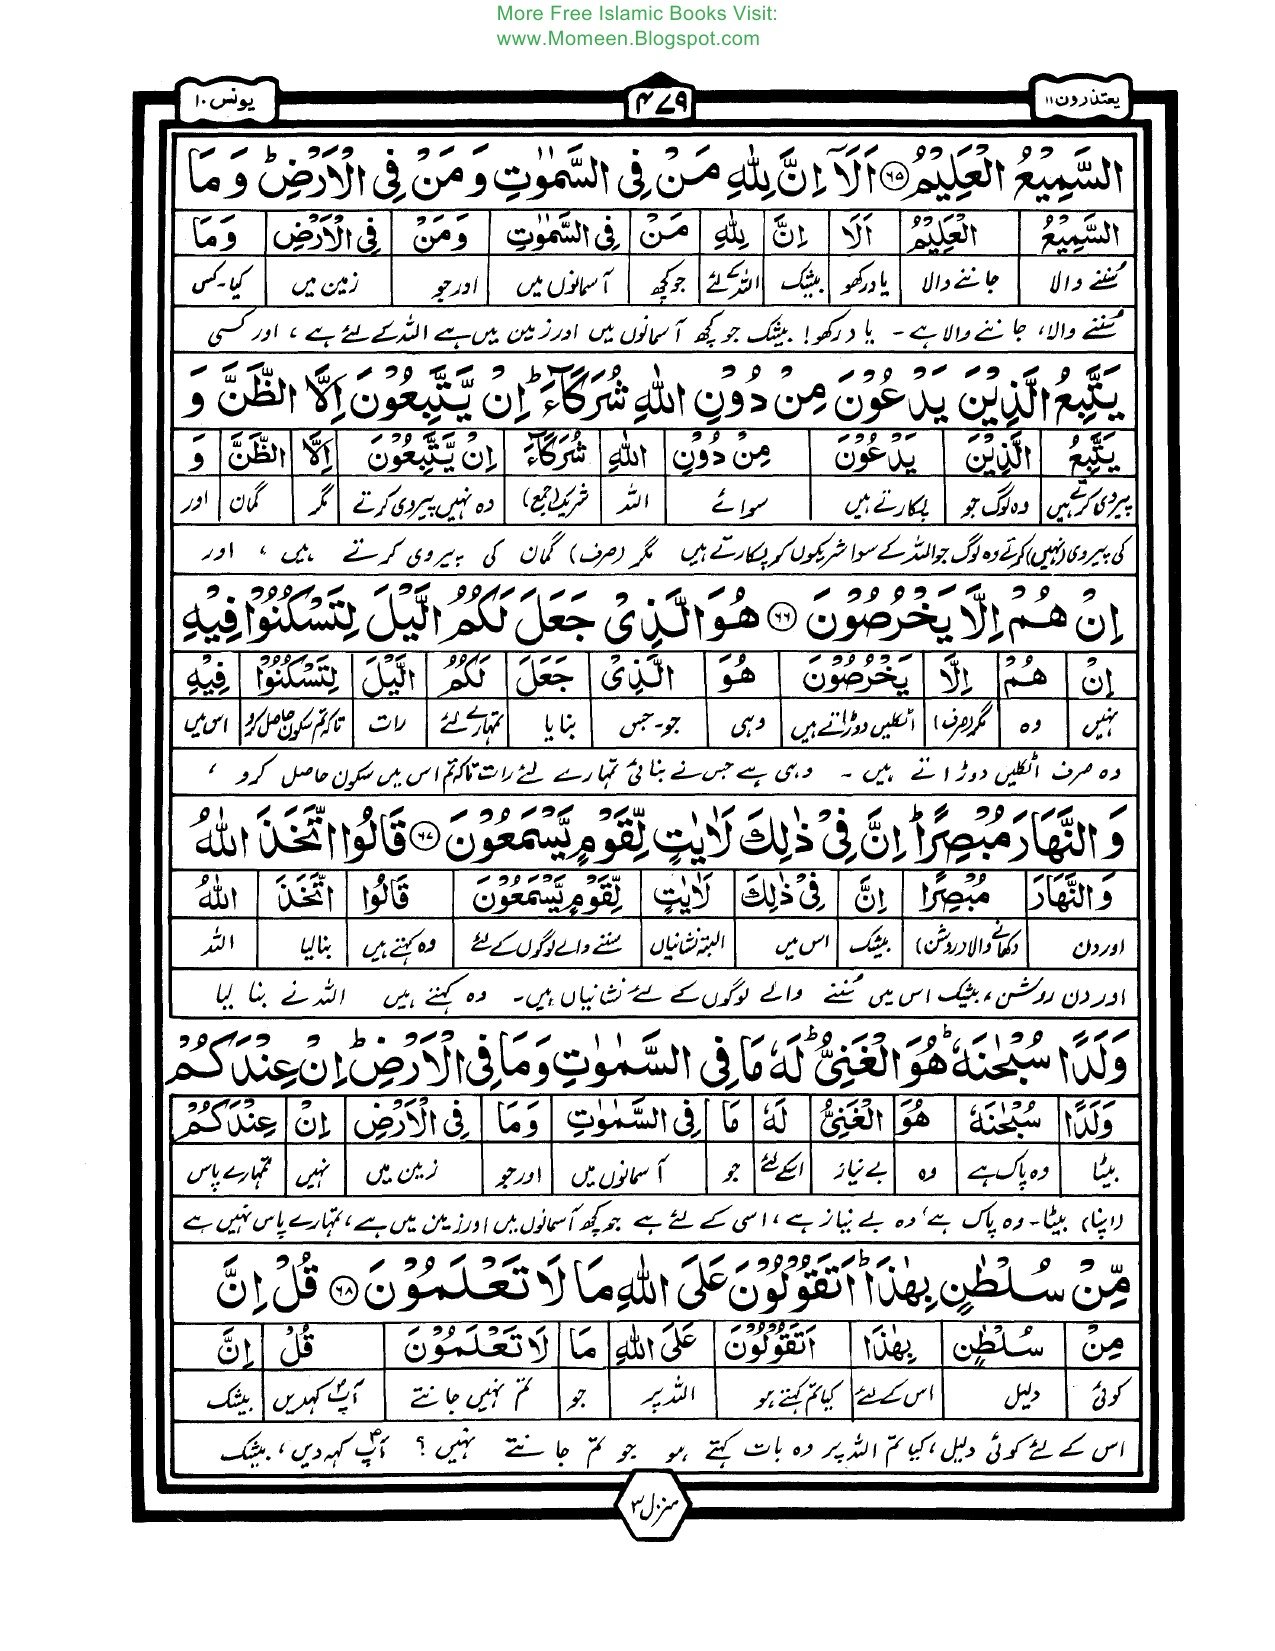 More Free Islamic Books Visit:
www.Momeen.Blogspot.com
یعتذرون ۱۱
۴۷۹
یونس ۱۰
السَّمِیْعُ الْعَلِیْمُ ﴿۶۵﴾ اَلَاۤ اِنَّ لِلّٰهِ مَنْ فِی السَّمٰوٰتِ وَ مَنْ فِی الْاَرْضِ ؕ وَ مَا
السَّمِیْعُ الْعَلِیْمُ اَلَا اِنَّ لِلّٰهِ مَنْ فِی السَّمٰوٰتِ وَمَنْ فِی الْاَرْضِ وَمَا
سُننے والا جاننے والا یاد رکھو بیشک اللہ کے لئے جو کچھ آسمانوں میں اور جو زمین میں کیا۔کس
سُننے والا، جاننے والا ہے۔ یاد رکھو! بیشک جو کچھ آسمانوں میں اور زمین میں ہے اللہ کے لئے ہے، اور کسی
یَتَّبِعُ الَّذِیْنَ یَدْعُوْنَ مِنْ دُوْنِ اللّٰهِ شُرَكَآءَ ؕ اِنْ یَّتَّبِعُوْنَ اِلَّا الظَّنَّ وَ
یَتَّبِعُ الَّذِیْنَ یَدْعُوْنَ مِنْ دُوْنِ اللّٰهِ شُرَكَآءَ اِنْ یَّتَّبِعُوْنَ اِلَّا الظَّنَّ وَ
پیروی کرتے ہیں وہ لوگ جو پکارتے ہیں سوائے اللہ شریک (جمع) وہ نہیں پیروی کرتے مگر گمان اور
کی پیروی (نہیں) کرتے وہ لوگ جو اللہ کے سوا شریکوں کو پکارتے ہیں مگر (صرف) گمان کی پیروی کرتے ہیں، اور
اِنْ هُمْ اِلَّا یَخْرُصُوْنَ ﴿۶۶﴾ هُوَ الَّذِیْ جَعَلَ لَكُمُ الَّیْلَ لِتَسْكُنُوْا فِیْهِ
اِنْ هُمْ اِلَّا یَخْرُصُوْنَ هُوَ الَّذِیْ جَعَلَ لَكُمُ الَّیْلَ لِتَسْكُنُوْا فِیْهِ
نہیں وہ مگر (صرف) اٹکلیں دوڑاتے ہیں وہی جو۔جس بنایا تمہارے لئے رات تاکہ تم سکون حاصل کرو اس میں
وہ صرف اٹکلیں دوڑاتے ہیں۔ وہی ہے جس نے بنائی تمہارے لئے رات تاکہ تم اس میں سکون حاصل کرو،
وَ النَّهَارَ مُبْصِرًا ؕ اِنَّ فِیْ ذٰلِكَ لَاٰیٰتٍ لِّقَوْمٍ یَّسْمَعُوْنَ ﴿۶۷﴾ قَالُوا اتَّخَذَ اللّٰهُ
وَالنَّهَارَ مُبْصِرًا اِنَّ فِیْ ذٰلِكَ لَاٰیٰتٍ لِّقَوْمٍ یَّسْمَعُوْنَ قَالُوا اتَّخَذَ اللّٰهُ
اور دن دکھانے والا (روشن) بیشک اس میں البتہ نشانیاں سننے والے لوگوں کے لئے وہ کہتے ہیں بنا لیا اللہ
اور دن روشن، بیشک اس میں سُننے والے لوگوں کے لئے نشانیاں ہیں۔ وہ کہتے ہیں اللہ نے بنا لیا
وَلَدًا سُبْحٰنَهٗ ؕ هُوَ الْغَنِیُّ ؕ لَهٗ مَا فِی السَّمٰوٰتِ وَ مَا فِی الْاَرْضِ ؕ اِنْ عِنْدَكُمْ
وَلَدًا سُبْحٰنَهٗ هُوَ الْغَنِیُّ لَهٗ مَا فِی السَّمٰوٰتِ وَمَا فِی الْاَرْضِ اِنْ عِنْدَكُمْ
بیٹا وہ پاک ہے وہ بے نیاز اسکے لئے جو آسمانوں میں اور جو زمین میں نہیں تمہارے پاس
(اپنا) بیٹا۔ وہ پاک ہے، وہ بے نیاز ہے، اسی کے لئے ہے جو کچھ آسمانوں میں اور زمین میں ہے، تمہارے پاس نہیں ہے
مِّنْ سُلْطٰنٍۭ بِهٰذَا ؕ اَتَقُوْلُوْنَ عَلَی اللّٰهِ مَا لَا تَعْلَمُوْنَ ﴿۶۸﴾ قُلْ اِنَّ
مِنْ سُلْطٰنٍ بِهٰذَا اَتَقُوْلُوْنَ عَلَی اللّٰهِ مَا لَا تَعْلَمُوْنَ قُلْ اِنَّ
کوئی دلیل اس کے لئے کیا تم کہتے ہو اللہ پر جو تم نہیں جانتے آپؐ کہدیں بیشک
اس کے لئے کوئی دلیل، کیا تم اللہ پر وہ بات کہتے ہو جو تم جانتے نہیں؟ آپؐ کہہ دیں، بیشک
منزل ۳